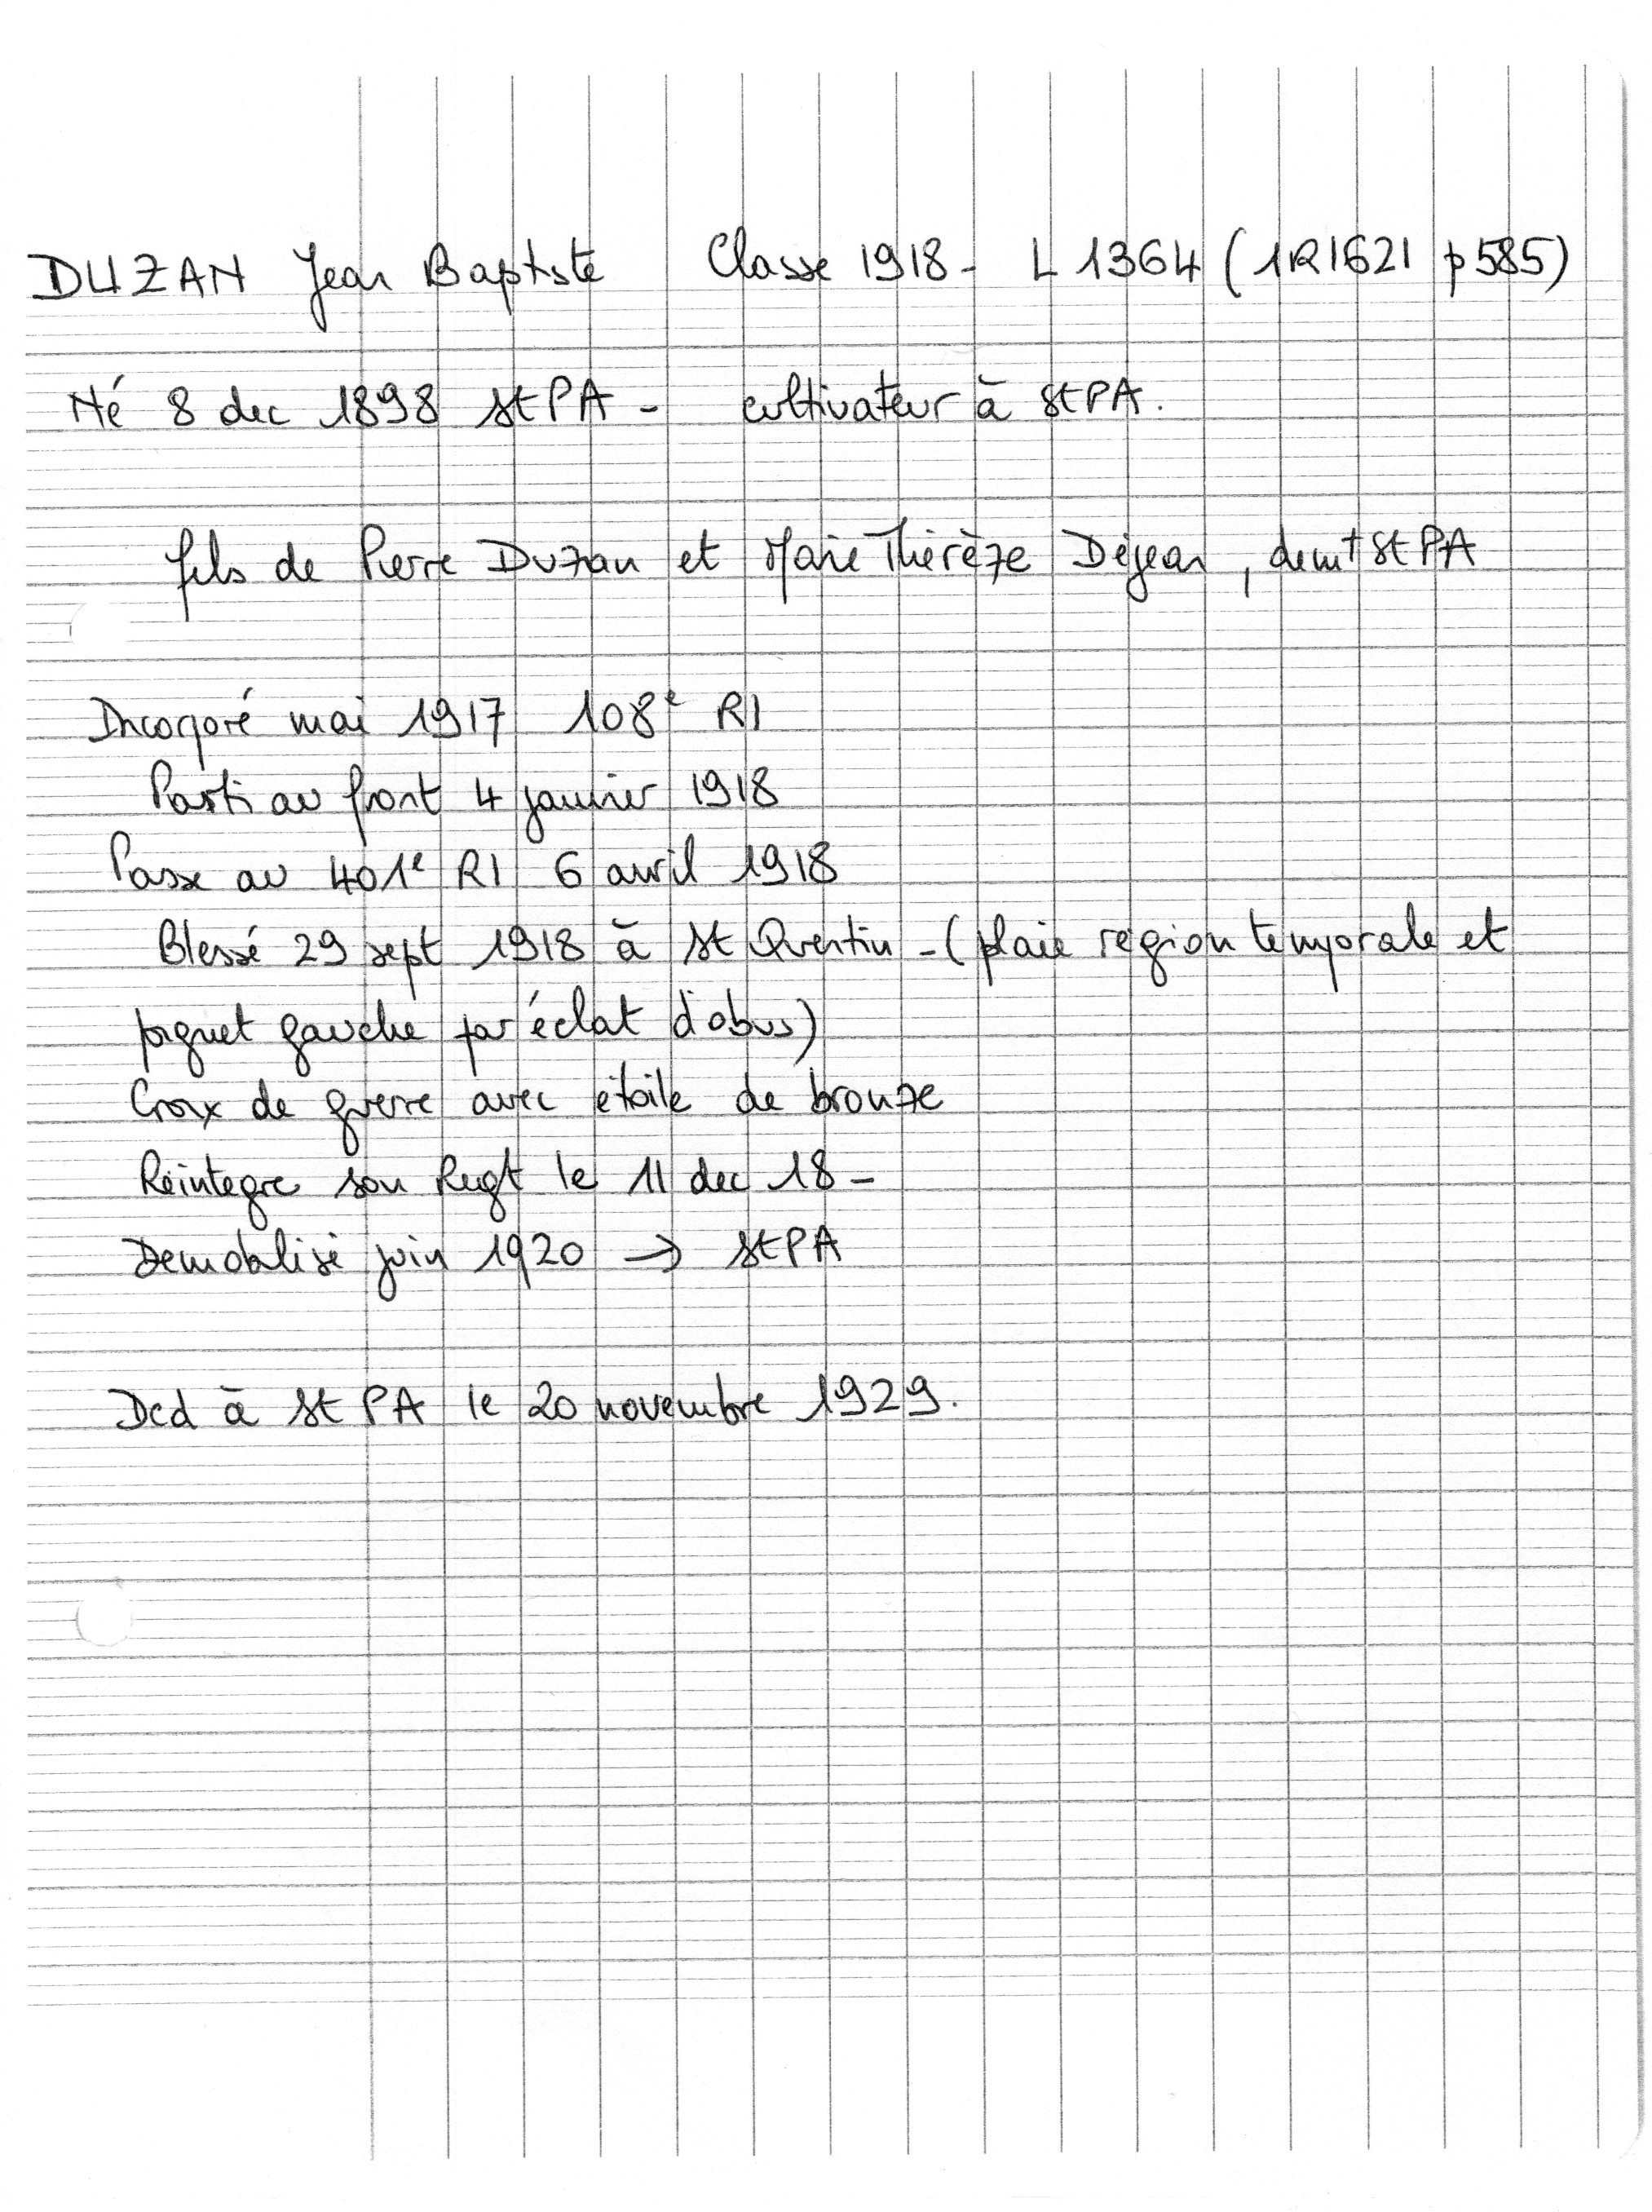 DUZAN Jean Baptiste Classe 1918 - L 1364 (1R1621 p585)
Né 8 dec 1898 St PA - cultivateur à St PA.
fils de Pierre Duzan et Marie Thérèze Dejean, demt St PA
Incorporé mai 1917 108e RI
Parti au front 4 janvier 1918
Passe au 401e RI 6 avril 1918
Blessé 29 sept 1918 à St Quentin - (plaie region temporale et
pignet gauche par éclat d'obus)
Croix de guerre avec étoile de bronze
Réintegre son Regt le 11 dec 18 -
Demobilisé juin 1920 → St PA
Dcd à St PA le 20 novembre 1929.